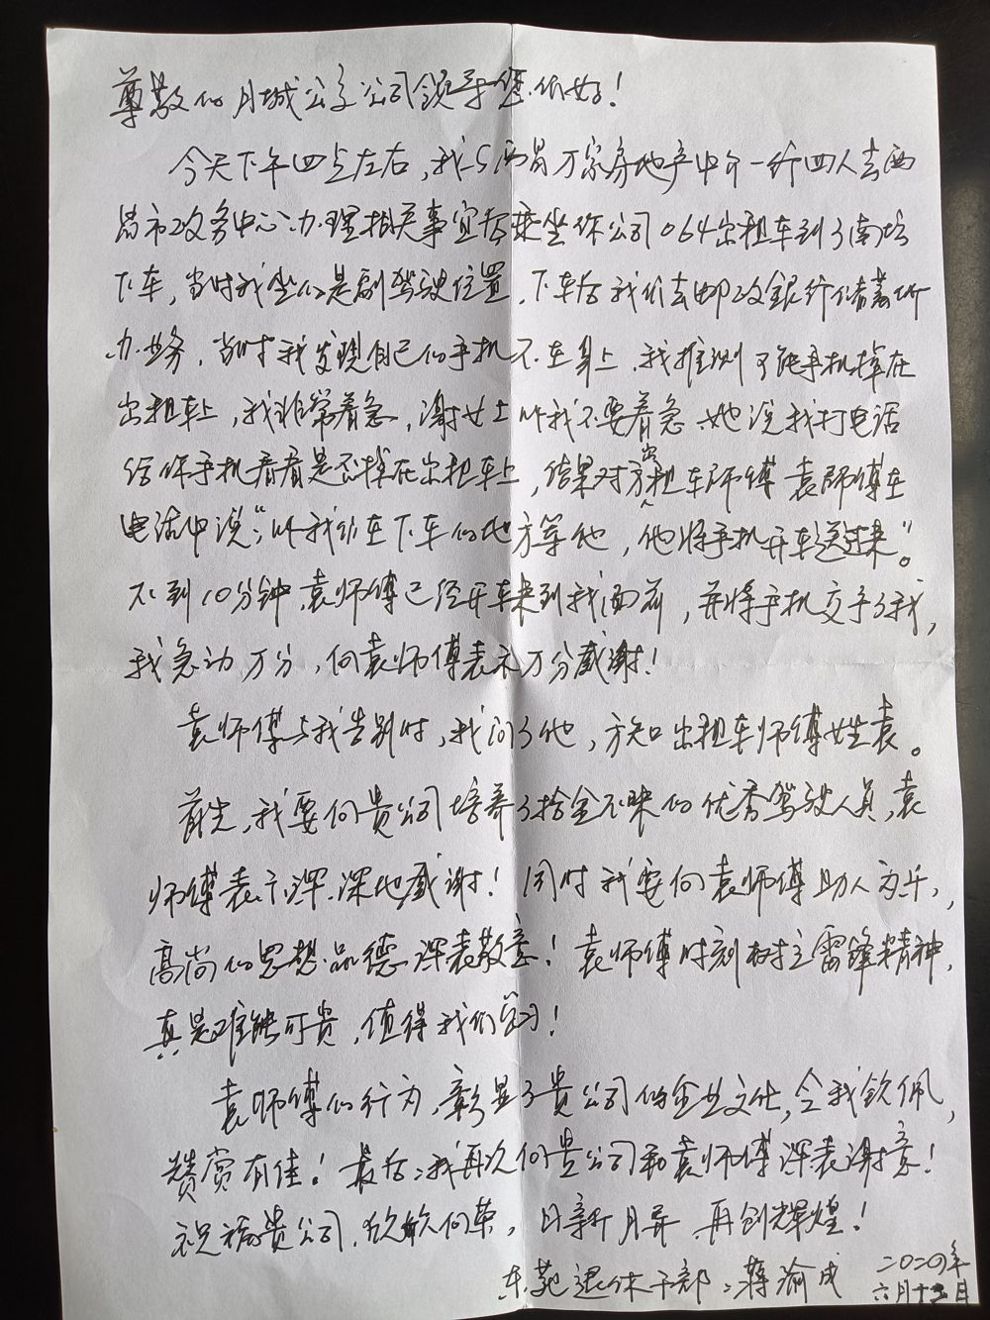 尊敬的月城公交公司领导您们好！
今天下午四点左右，我与西昌万家房地产中介一行四人去西
昌市政务中心办理相关事宜后乘坐你公司064出租车到了南坛
下车，当时我坐的是副驾驶位置，下车后我们去邮政銀行储蓄所
办业务，当时我发现自己的手机不在身上，我推测可能手机掉在
出租车上，我非常着急，谢女士叫我不要着急，她说我打电话
给你手机看看是否掉在出租车上，结果对方出租车师傅袁师傅在
电话中说："叫我们在下车的地方等他，他将手机开车送过来"。
不到10分钟，袁师傅已经开车来到我面前，并将手机交予了我，
我急动万分，向袁师傅表示万分感谢！
袁师傅与我告别时，我问了他，方知出租车师傅姓袁。
首先，我要向贵公司培养了拾金不昧的优秀驾驶人员，袁
师傅表示深深地感谢！同时我要向袁师傅助人为乐，
高尚的思想品德深表敬意！袁师傅时刻树立雷锋精神，
真是难能可贵，值得我们学习！
袁师傅的行为，彰显了贵公司的企业文化，令我钦佩，
赞赏有佳！最后，我再次向贵公司和袁师傅深表谢意！
祝福贵公司，欣欣向荣，日新月异，再创辉煌！
东苑退休干部：蒋渝成
二〇二〇年
六月十 月